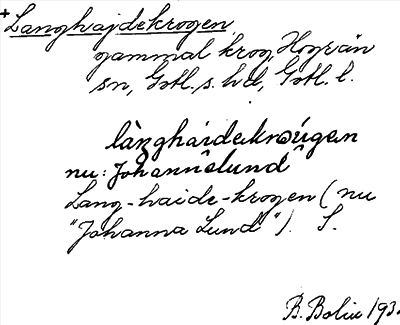 + Langhajdekrogen,
gammal krog, Hogrän
sn, Gotl. s. hd, Gotl. l.
làŋghàidekrǝúgen
nu: Johannêlund
Lang-haide-krogen (nu
"Johanna Lund"). S.
B. Bolin